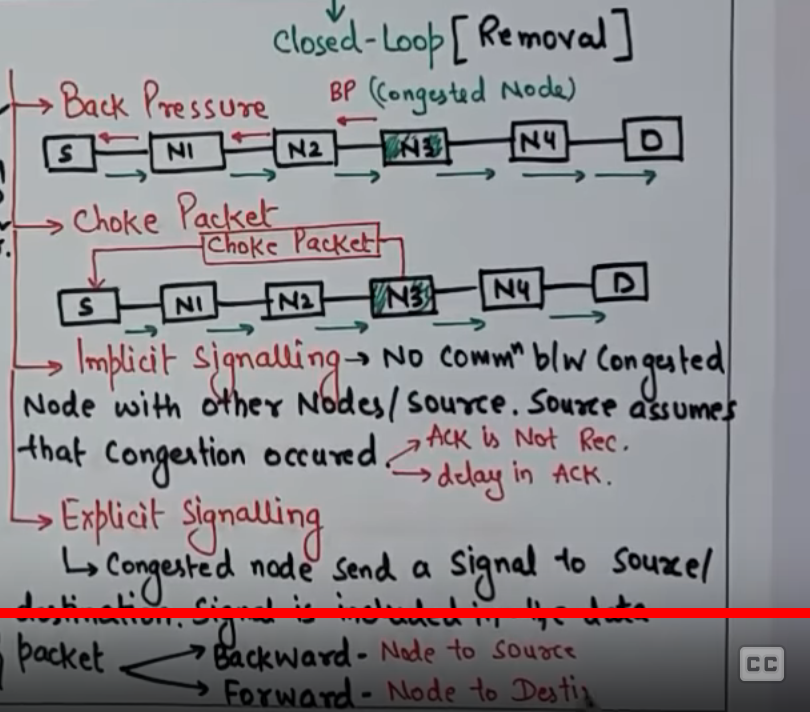 Closed-Loop [Removal]
→ Back Pressure BP (Congested Node)
S N1 N2 N3 N4 D
→ Choke Packet
Choke Packet
S N1 N2 N3 N4 D
→ Implicit Signalling → No Commⁿ b/w Congested
Node with other Nodes/Source. Source assumes
that Congestion occured → ACK is Not Rec.
→ delay in ACK.
→ Explicit Signalling
↳ Congested node send a Signal to Source/
destination. Signal is included in the data
packet → Backward - Node to source
→ Forward - Node to Desti
CC